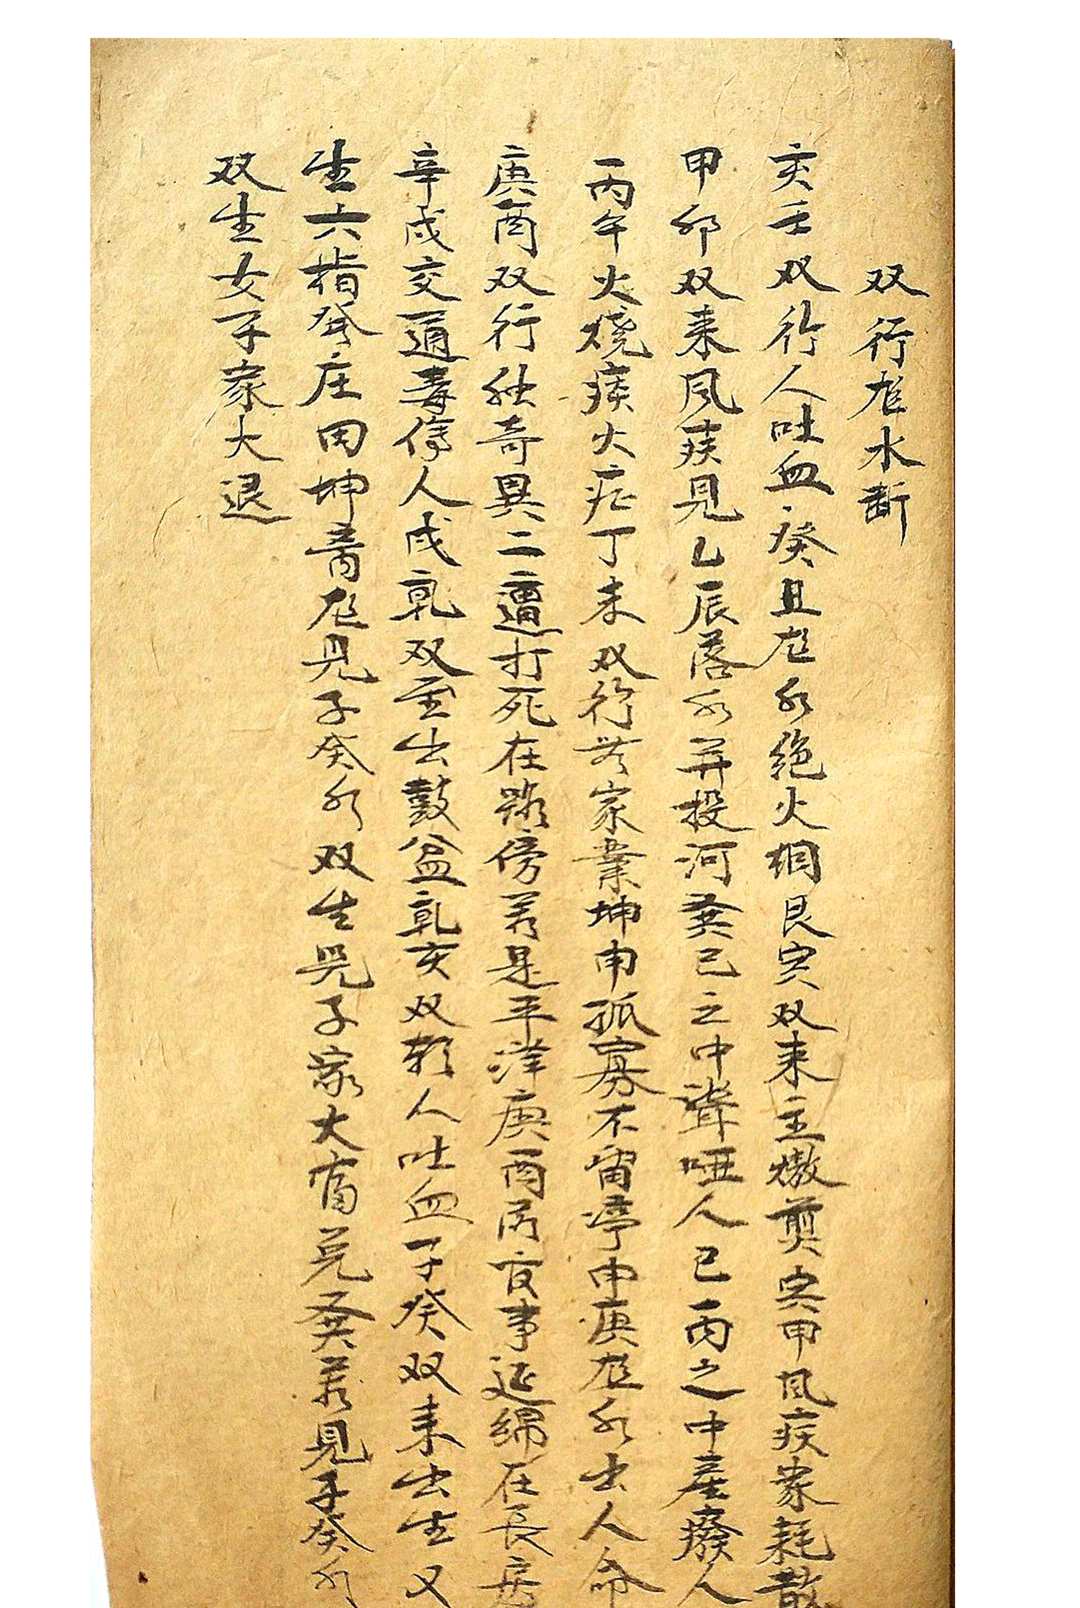 双行龙水断
亥壬双行人吐血癸丑龙水绝火相艮寅双来主熬煎寅甲风疾家耗散
甲卯双来风疾見乙辰落水并投河巽巳之中聋哑人巳丙之中產癈人
丙午火燒痰火症丁未双行艹家業坤申孤寡不甯亭申庚龙水出人命
庚酉双行独奇異二遭打死在路傍若是平洋庚酉丙夜事延綿在長房
辛戌交通毒傷人戌乾双至出鼓盆乾亥双朝人吐血子癸双来出生又
生六指癸庄田坤龙見子癸水双生児子家大富兑巽若見子癸水
双生女子家大退